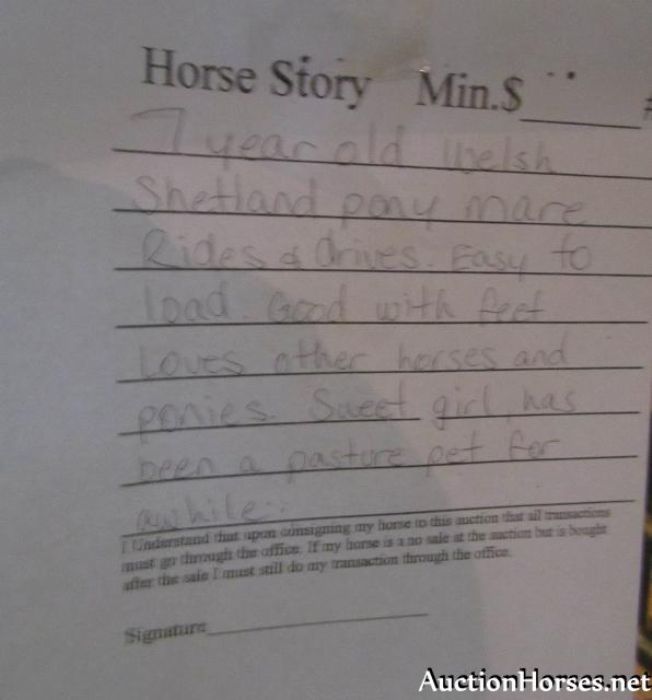 Horse Story Min.$______ #
7 year old Welsh
Shetland pony mare
Rides & drives. Easy to
load. Good with feet
Loves other horses and
ponies. Sweet girl, has
been a pasture pet for
awhile.
I Understand that upon consigning my horse to this auction that all transactions
must go through the office. If my horse is a no sale at the auction but is bought
after the sale I must still do my transaction through the office.
Signature______
AuctionHorses.net